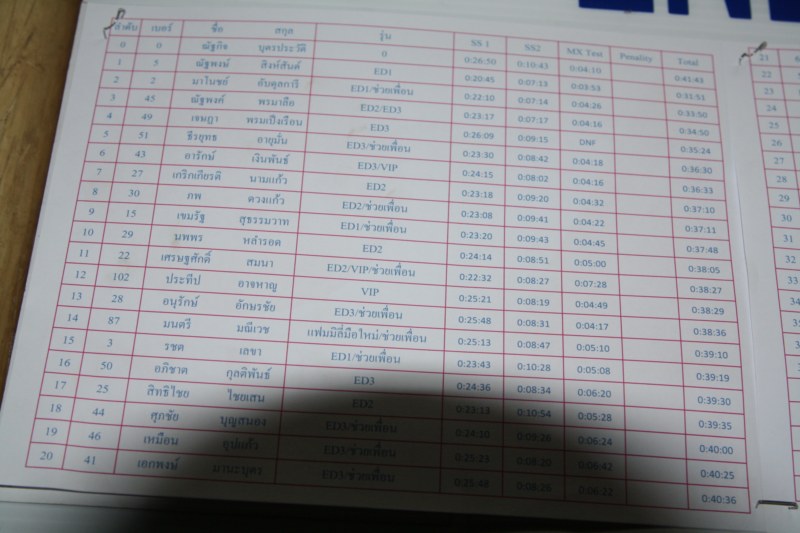 ลำดับ เบอร์ ชื่อ สกุล รุ่น SS 1 SS2 MX Test Penality Total
0 0 ณัฐกิจ บุตรประวัติ 0 0:26:50 0:10:43 0:04:10 0:41:43
1 5 ณัฐพงษ์ สิงห์สันต์ ED1 0:20:45 0:07:13 0:03:53 0:31:51
2 2 มาโนชย์ อับดุลการี ED1/ช่วยเพื่อน 0:22:10 0:07:14 0:04:26 0:33:50
3 45 ณัฐพงค์ พรมาลือ ED2/ED3 0:23:17 0:07:17 0:04:16 0:34:50
4 49 เจษฎา พรมแป้งเรือน ED3 0:26:09 0:09:15 DNF 0:35:24
5 51 ธีรยุทธ อายุมั่น ED3/ช่วยเพื่อน 0:23:30 0:08:42 0:04:18 0:36:30
6 43 อารักษ์ เงินพันธ์ ED3/VIP 0:24:15 0:08:02 0:04:16 0:36:33
7 27 เกริกเกียรติ นามแก้ว ED2 0:23:18 0:09:20 0:04:32 0:37:10
8 30 ภพ ดวงแก้ว ED2/ช่วยเพื่อน 0:23:08 0:09:41 0:04:22 0:37:11
9 15 เขมรัฐ สุธรรมวาท ED1/ช่วยเพื่อน 0:23:20 0:09:43 0:04:45 0:37:48
10 29 นพพร หล้ารอด ED2 0:24:14 0:08:51 0:05:00 0:38:05
11 22 เศรษฐศักดิ์ สมนา ED2/VIP/ช่วยเพื่อน 0:22:32 0:08:27 0:07:28 0:38:27
12 102 ประทีป อาจหาญ VIP 0:25:21 0:08:19 0:04:49 0:38:29
13 28 อนุรักษ์ อักษรชัย ED3/ช่วยเพื่อน 0:25:48 0:08:31 0:04:17 0:38:36
14 87 มนตรี มณีเวช แฟมมิลี่มือใหม่/ช่วยเพื่อน 0:25:13 0:08:47 0:05:10 0:39:10
15 3 รชต เลขา ED1/ช่วยเพื่อน 0:23:43 0:10:28 0:05:08 0:39:19
16 50 อภิชาต กุลติพันธ์ ED3 0:24:36 0:08:34 0:06:20 0:39:30
17 25 สิทธิไชย ไชยเสน ED2 0:23:13 0:10:54 0:05:28 0:39:35
18 44 ศุภชัย บุญสนอง ED3/ช่วยเพื่อน 0:24:10 0:09:26 0:06:24 0:40:00
19 46 เหมือน อูปแก้ว ED3/ช่วยเพื่อน 0:25:23 0:08:20 0:06:42 0:40:25
20 41 เอกพงษ์ มานะบุตร ED3/ช่วยเพื่อน 0:25:48 0:08:26 0:06:22 0:40:36
21
22
23
24
25
26
27
28
29
30
31
32
33
34